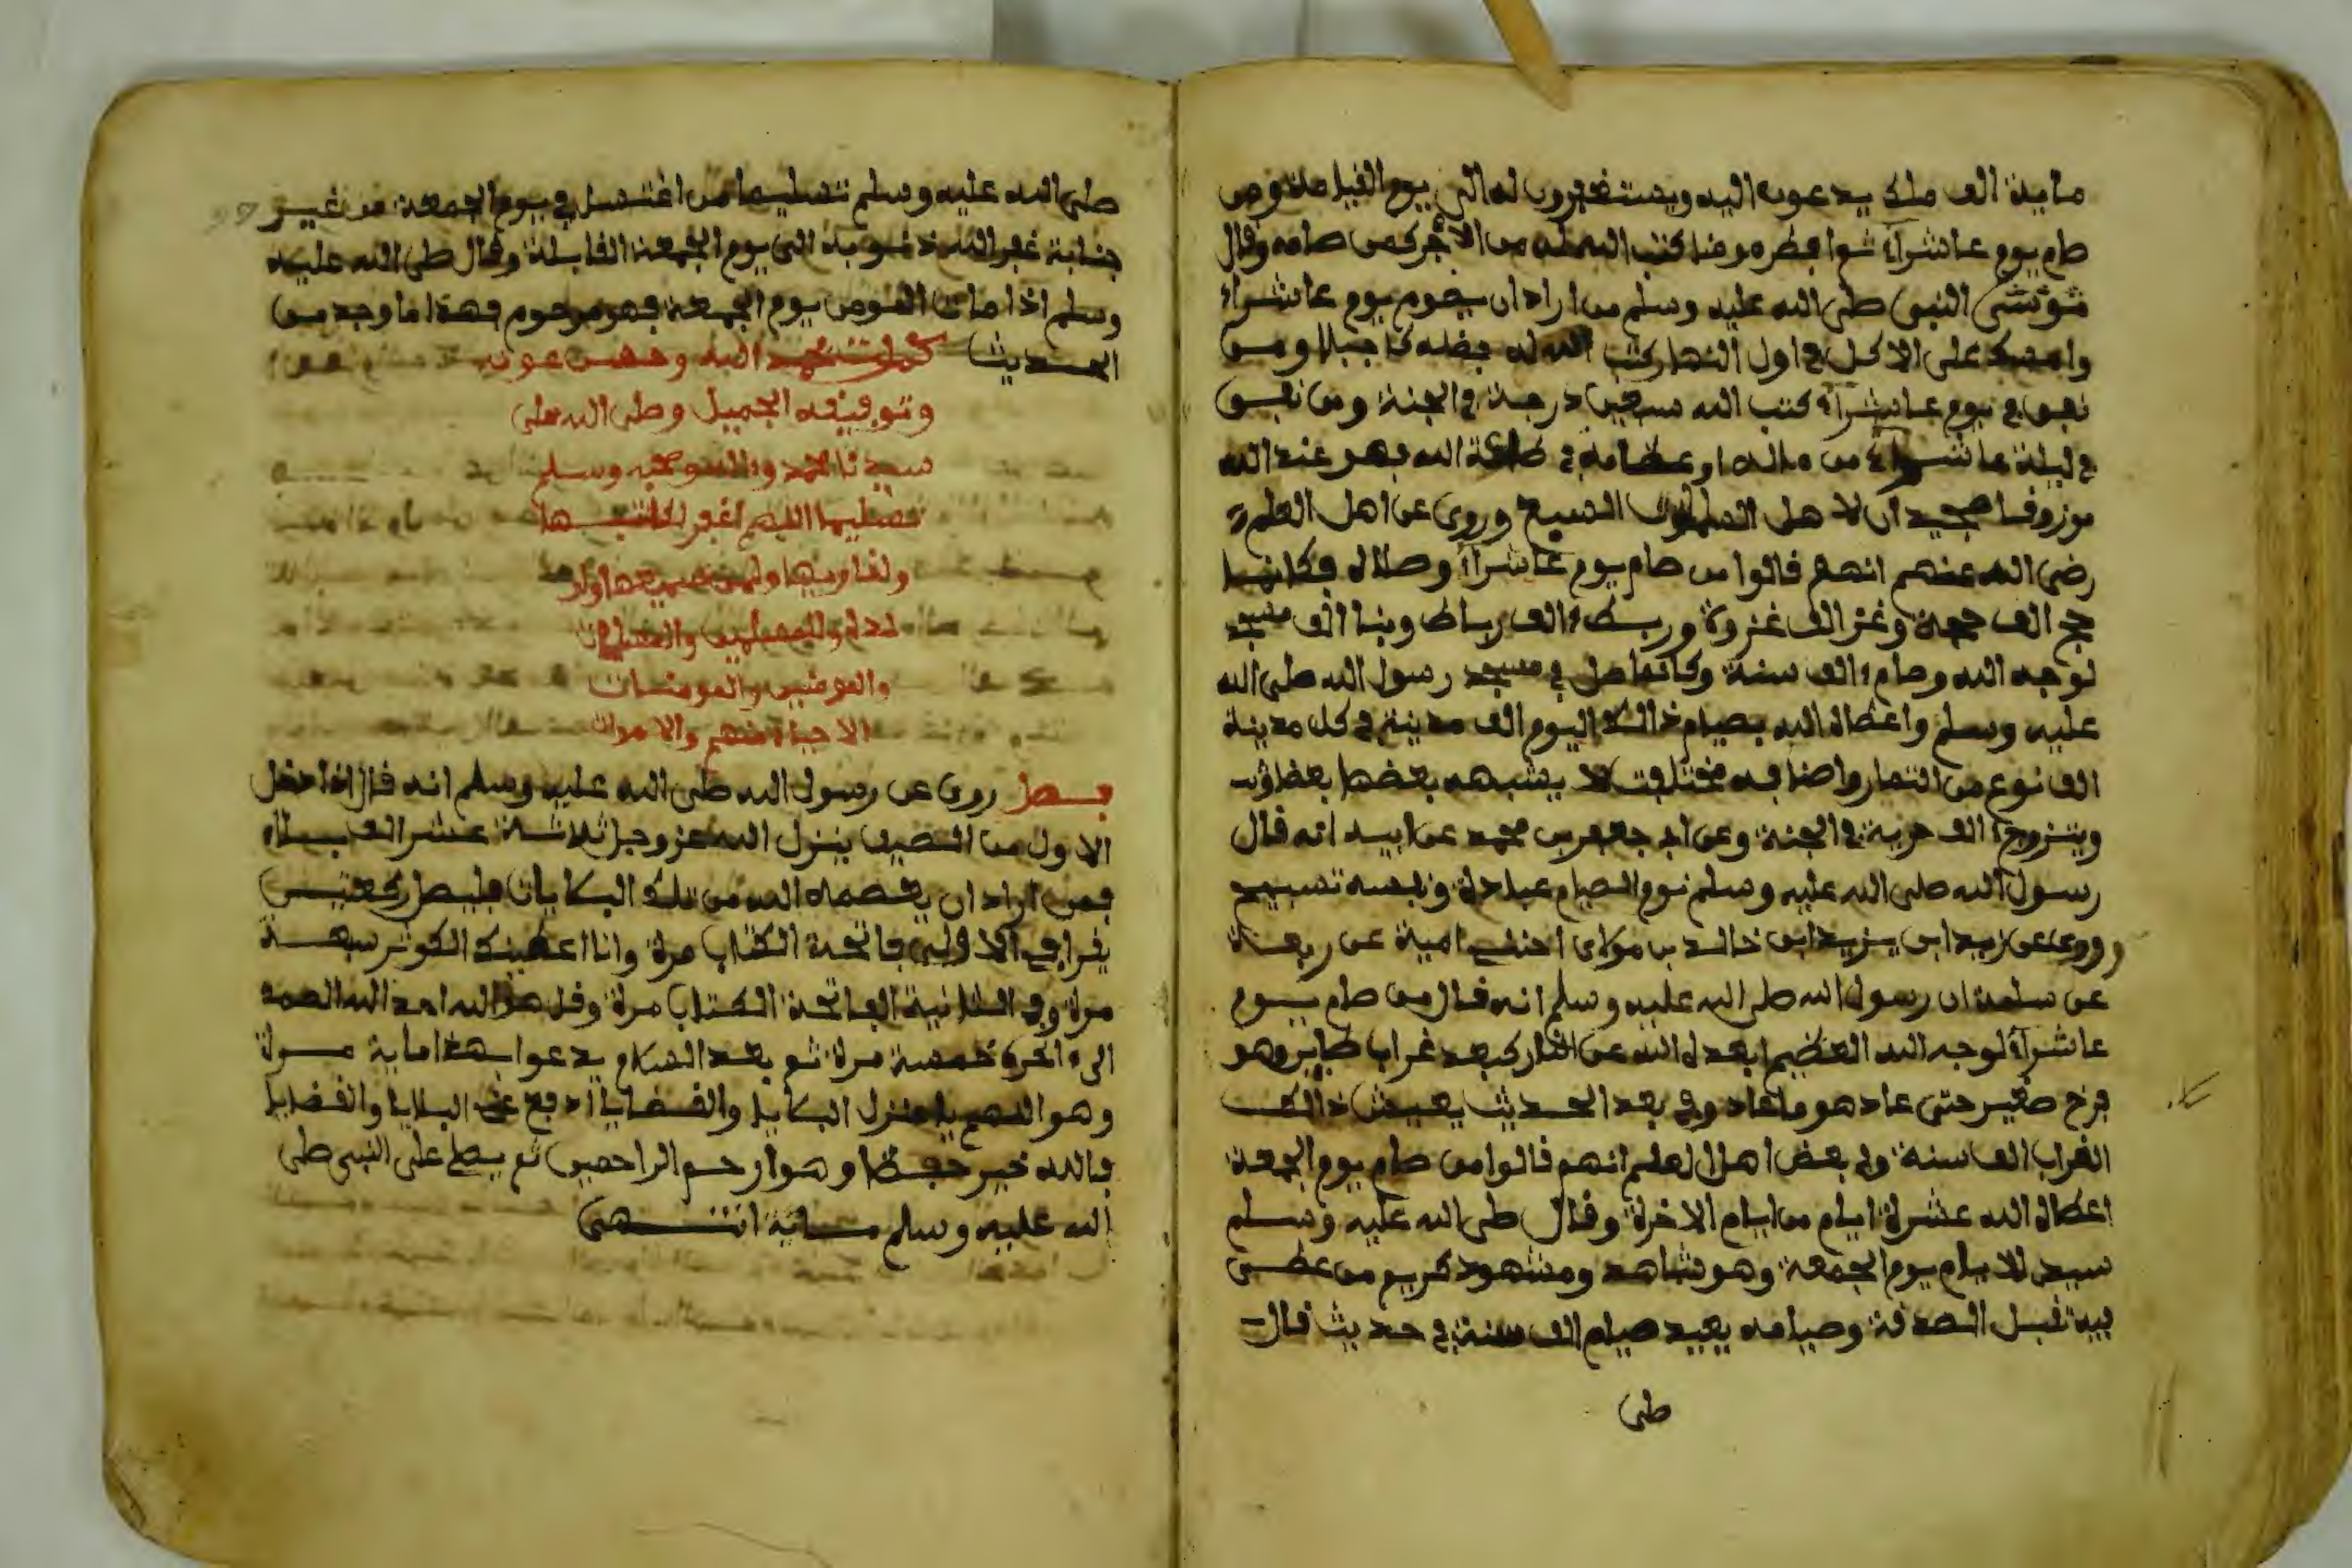 ماية الف ملك يدعون اليه ويستغفرون له الى يوم القيامة ومن
صام يوم عاشرآء ثم افطر مومنا كتب الله له من الاجر كمن صامه وقال
النبي صلى الله عليه وسلم من اراد ان يصوم يوم عاشراء
وامسك على الاكل في اول النهار كتب الله له ومن
نفق في يوم عاشرآء كتب الله سبعين درجة في الجنة ومن نفق
في ليلة عاشرآء من ماله او عظامه في طاعة الله فهو عند الله
السبع وروي عن اهل العلم
رضي الله عنهم انهم قالوا من صام يوم عاشرآء وصلاله فكانما
حج الف حجة وغز الف غزوة وربط الف رباط وبنا الف مسجد
لوجه الله وصام الف سنة وكانما صل في مسجد رسول الله صلى الله
عليه وسلم واعطاه الله بصيام ذالك اليوم الف مدينة في كل مدينة
الف نوع من الثمار واصنافه مختلفة لا يشبه بعضها بعظا
ويتزوج الف حرية في الجنة وعن ابي جعفر بن محمد عن ابيه انه قال
رسول الله صلى الله عليه وسلم نوم الصيام عبادة ونفسه تسبيح
وروي عن زيد ابن يزيد ابن خالد بن مولاى امية عن ربعة
عن سلمة ان رسول الله صلى الله عليه وسلم انه قال من صام يوم
عاشرآء لوجه الله العظيم ابعده الله عن النار كبعد غراب طاير وهو
فرخ صغير حتى عاد هوما وفي بعد الحديث يعيش ذالك
الغراب الف سنة وفي بعض اهل العلم انهم قالوا من صام يوم الجمعة
اعطاه الله عشرة ايام من ايام الاخرة وقال صلى الله عليه وسلم
سيد الايام يوم الجمعة وهو شاهد ومشهود كريم من عظيم
فيه تقبل الصدقة وصيامه يعيد صيام الف سنة في حديث قال
صلى
صلى الله عليه وسلم تسليما من اغتسل في يوم الجمعة من غير
جنابة غفر الله ذنوبه الى يوم الجمعة القابلة وقال صلى الله عليه
وسلم اذا مات المومن يوم الجمعة فهو مرحوم فهذا ما وجد من
الحديث كملت بحمد الله وحسن عونه
وتوفيقه الجميل وصلى الله على
سيدنا محمد وءاله وصحبه وسلم
تسليما اللهم اغفر لكاتبها
ولقاريها ولمن سمعها
والمسلمين والمسلمات
والمومنين والمومنات
الاحياء منهم والاموات
فصل روي عن رسول الله صلى الله عليه وسلم انه قال اذا دخل
الاول من الصيف ينزل الله عز وجل ثلاثة عشر الف بلاء
فمن اراد ان يعصمه الله من تلك البلايات فليصل ركعتين
يقرا في الاولى فاتحة الكتاب مرة وانا اعطينك الكوثر سبعة
مرة وفي الثانية الفاتحة الكتاب مرة وقل هو الله احد الله الصمد
الى ءاخره خمسة مرة ثم بعد السلام يدعوا بهذا ماية مرة
وهو اللهم يا منزل البلايا والقضايا ادفع عني البلايا والقضايا
فالله خير حفظا وهو ارحم الراحمين ثم يصلي على النبي صلى
الله عليه وسلم ماية انتهى